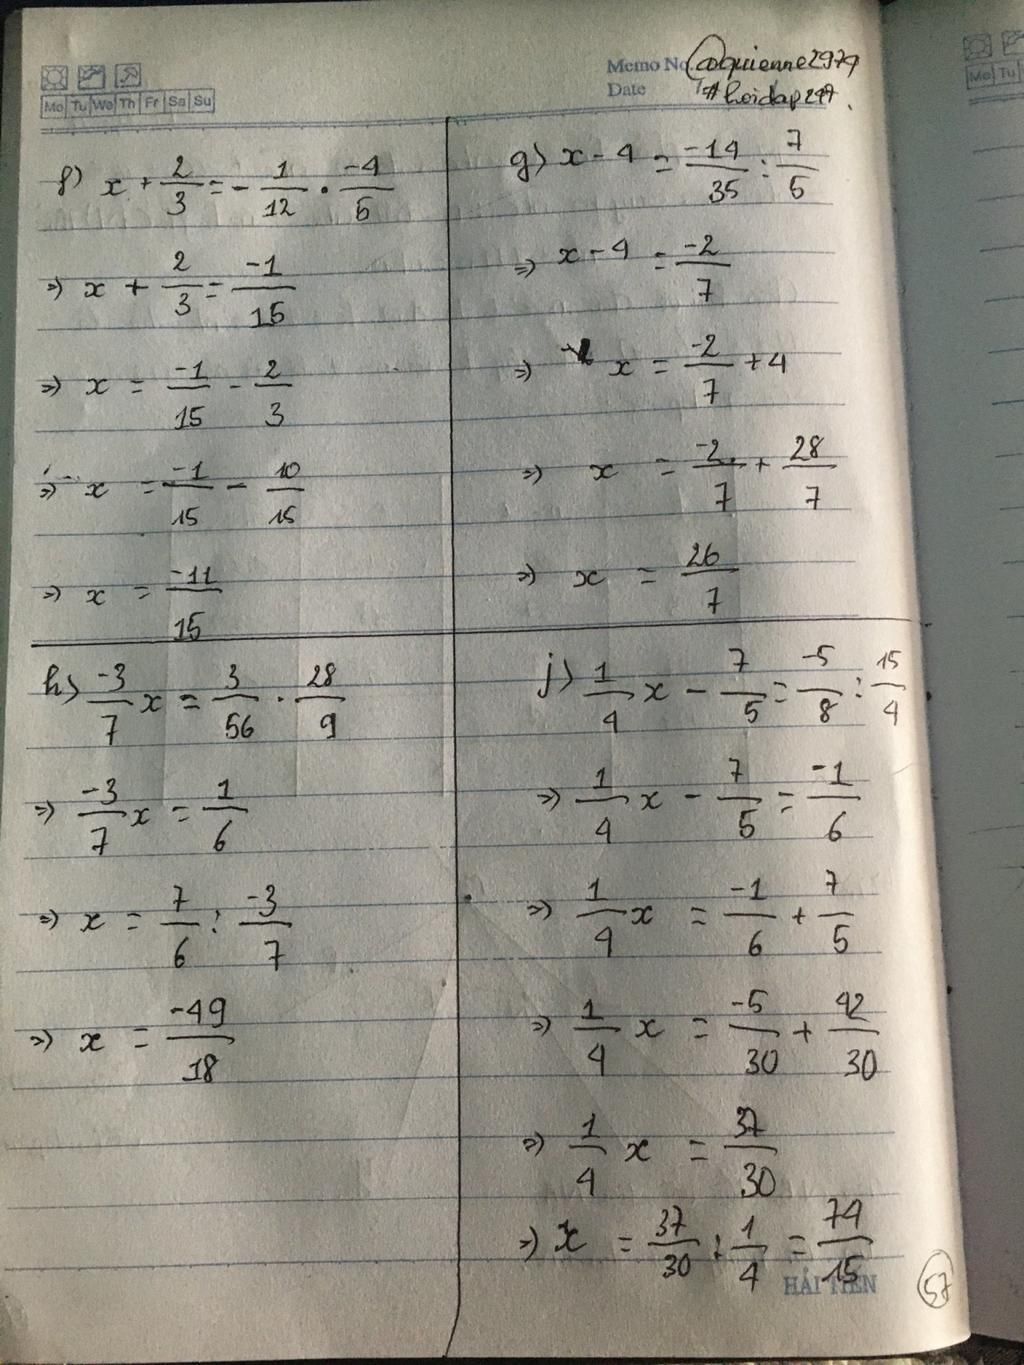 Mo Tu We Th Fr Sa Su
Memo No. @quienne2979
Date #hoidap247.
f) x + 2/3 = - 1/12 . -4/5
=> x + 2/3 = -1/15
=> x = -1/15 - 2/3
=> x = -1/15 - 10/15
=> x = -11/15
g) x - 4 = -14/35 : 7/5
=> x - 4 = -2/7
=> x = -2/7 + 4
=> x = -2/7 + 28/7
=> x = 26/7
h) -3/7 x = 3/56 . 28/9
=> -3/7 x = 1/6
=> x = 7/6 : -3/7
=> x = -49/18
j) 1/4 x - 7/5 = -5/8 : 15/4
=> 1/4 x - 7/5 = -1/6
=> 1/4 x = -1/6 + 7/5
=> 1/4 x = -5/30 + 42/30
=> 1/4 x = 37/30
=> x = 37/30 : 1/4 = 74/15
HẢI TIẾN
57
Mo Tu